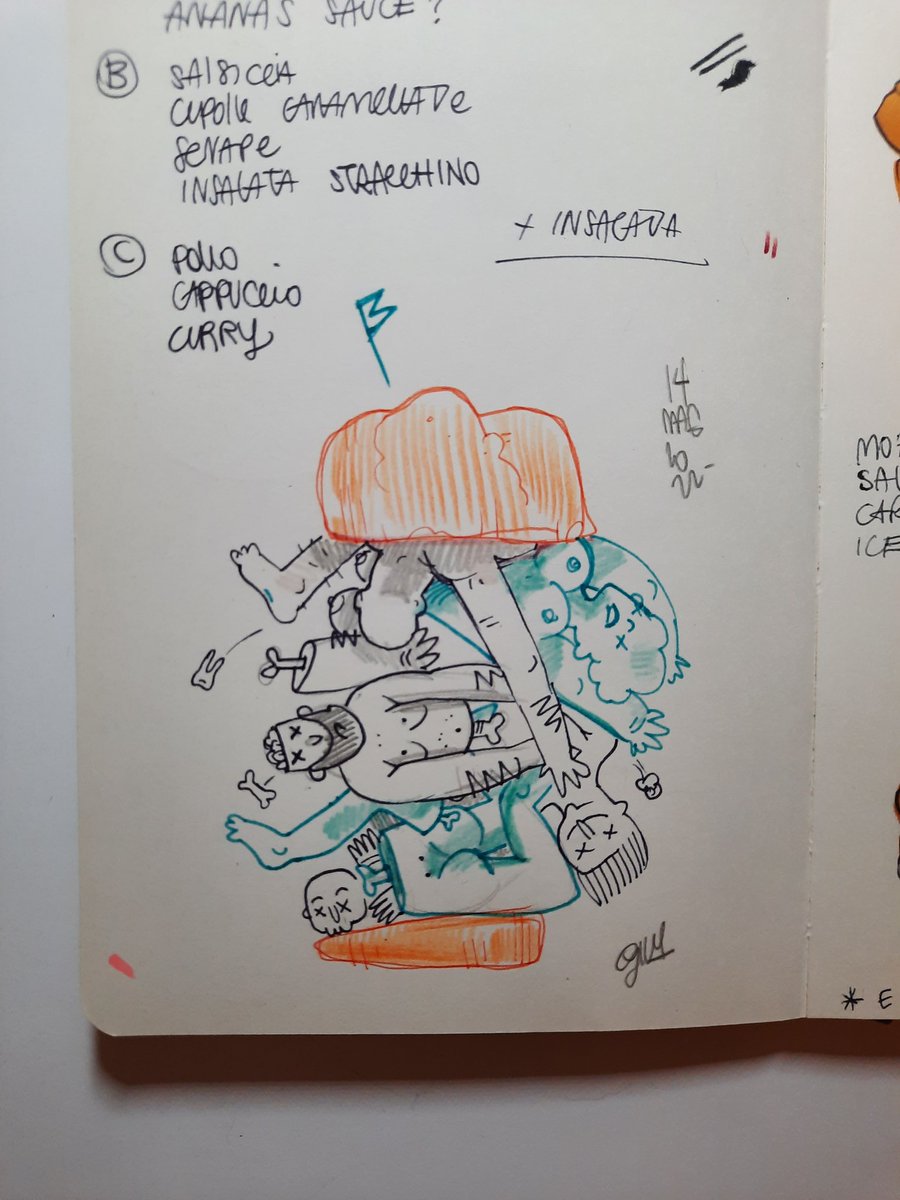 ANANAS SAUCE?
B SALSICCIA
CIPOLLE CARAMELLATE
SENAPE
INSALATA STRACCHINO
+ INSALATA
C POLLO
CAPPUCCIO
CURRY
14
MAG
20
22
MO
SAL
CAR
ICE
* E